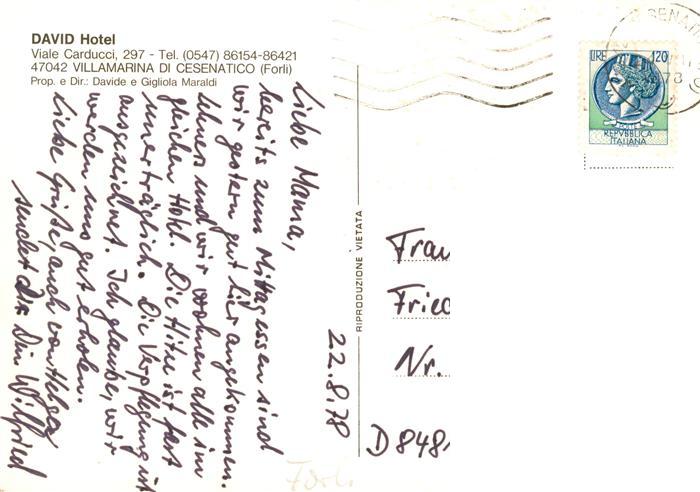 DAVID Hotel
Viale Carducci, 297 - Tel. (0547) 86154-86421
47042 VILLAMARINA DI CESENATICO (Forlì)
Prop. e Dir.: Davide e Gigliola Maraldi
Liebe Mama,
bereits zum Mittagessen sind
wir gestern gut hier angekommen.
und wir wohnen alle im
gleichen Hotel. Die Hitze ist fast
unerträglich. Die Verpflegung ist
ausgezeichnet. Ich glaube, wir
werden uns gut erholen.
Liebe Grüße, auch von Helga
sendet Dir Dein Wilfried
22.8.78
RIPRODUZIONE VIETATA
LIRE 120
REPVBBLICA
ITALIANA
SENATI
78
Frau
Fried
Nr.
D 848
Forlì